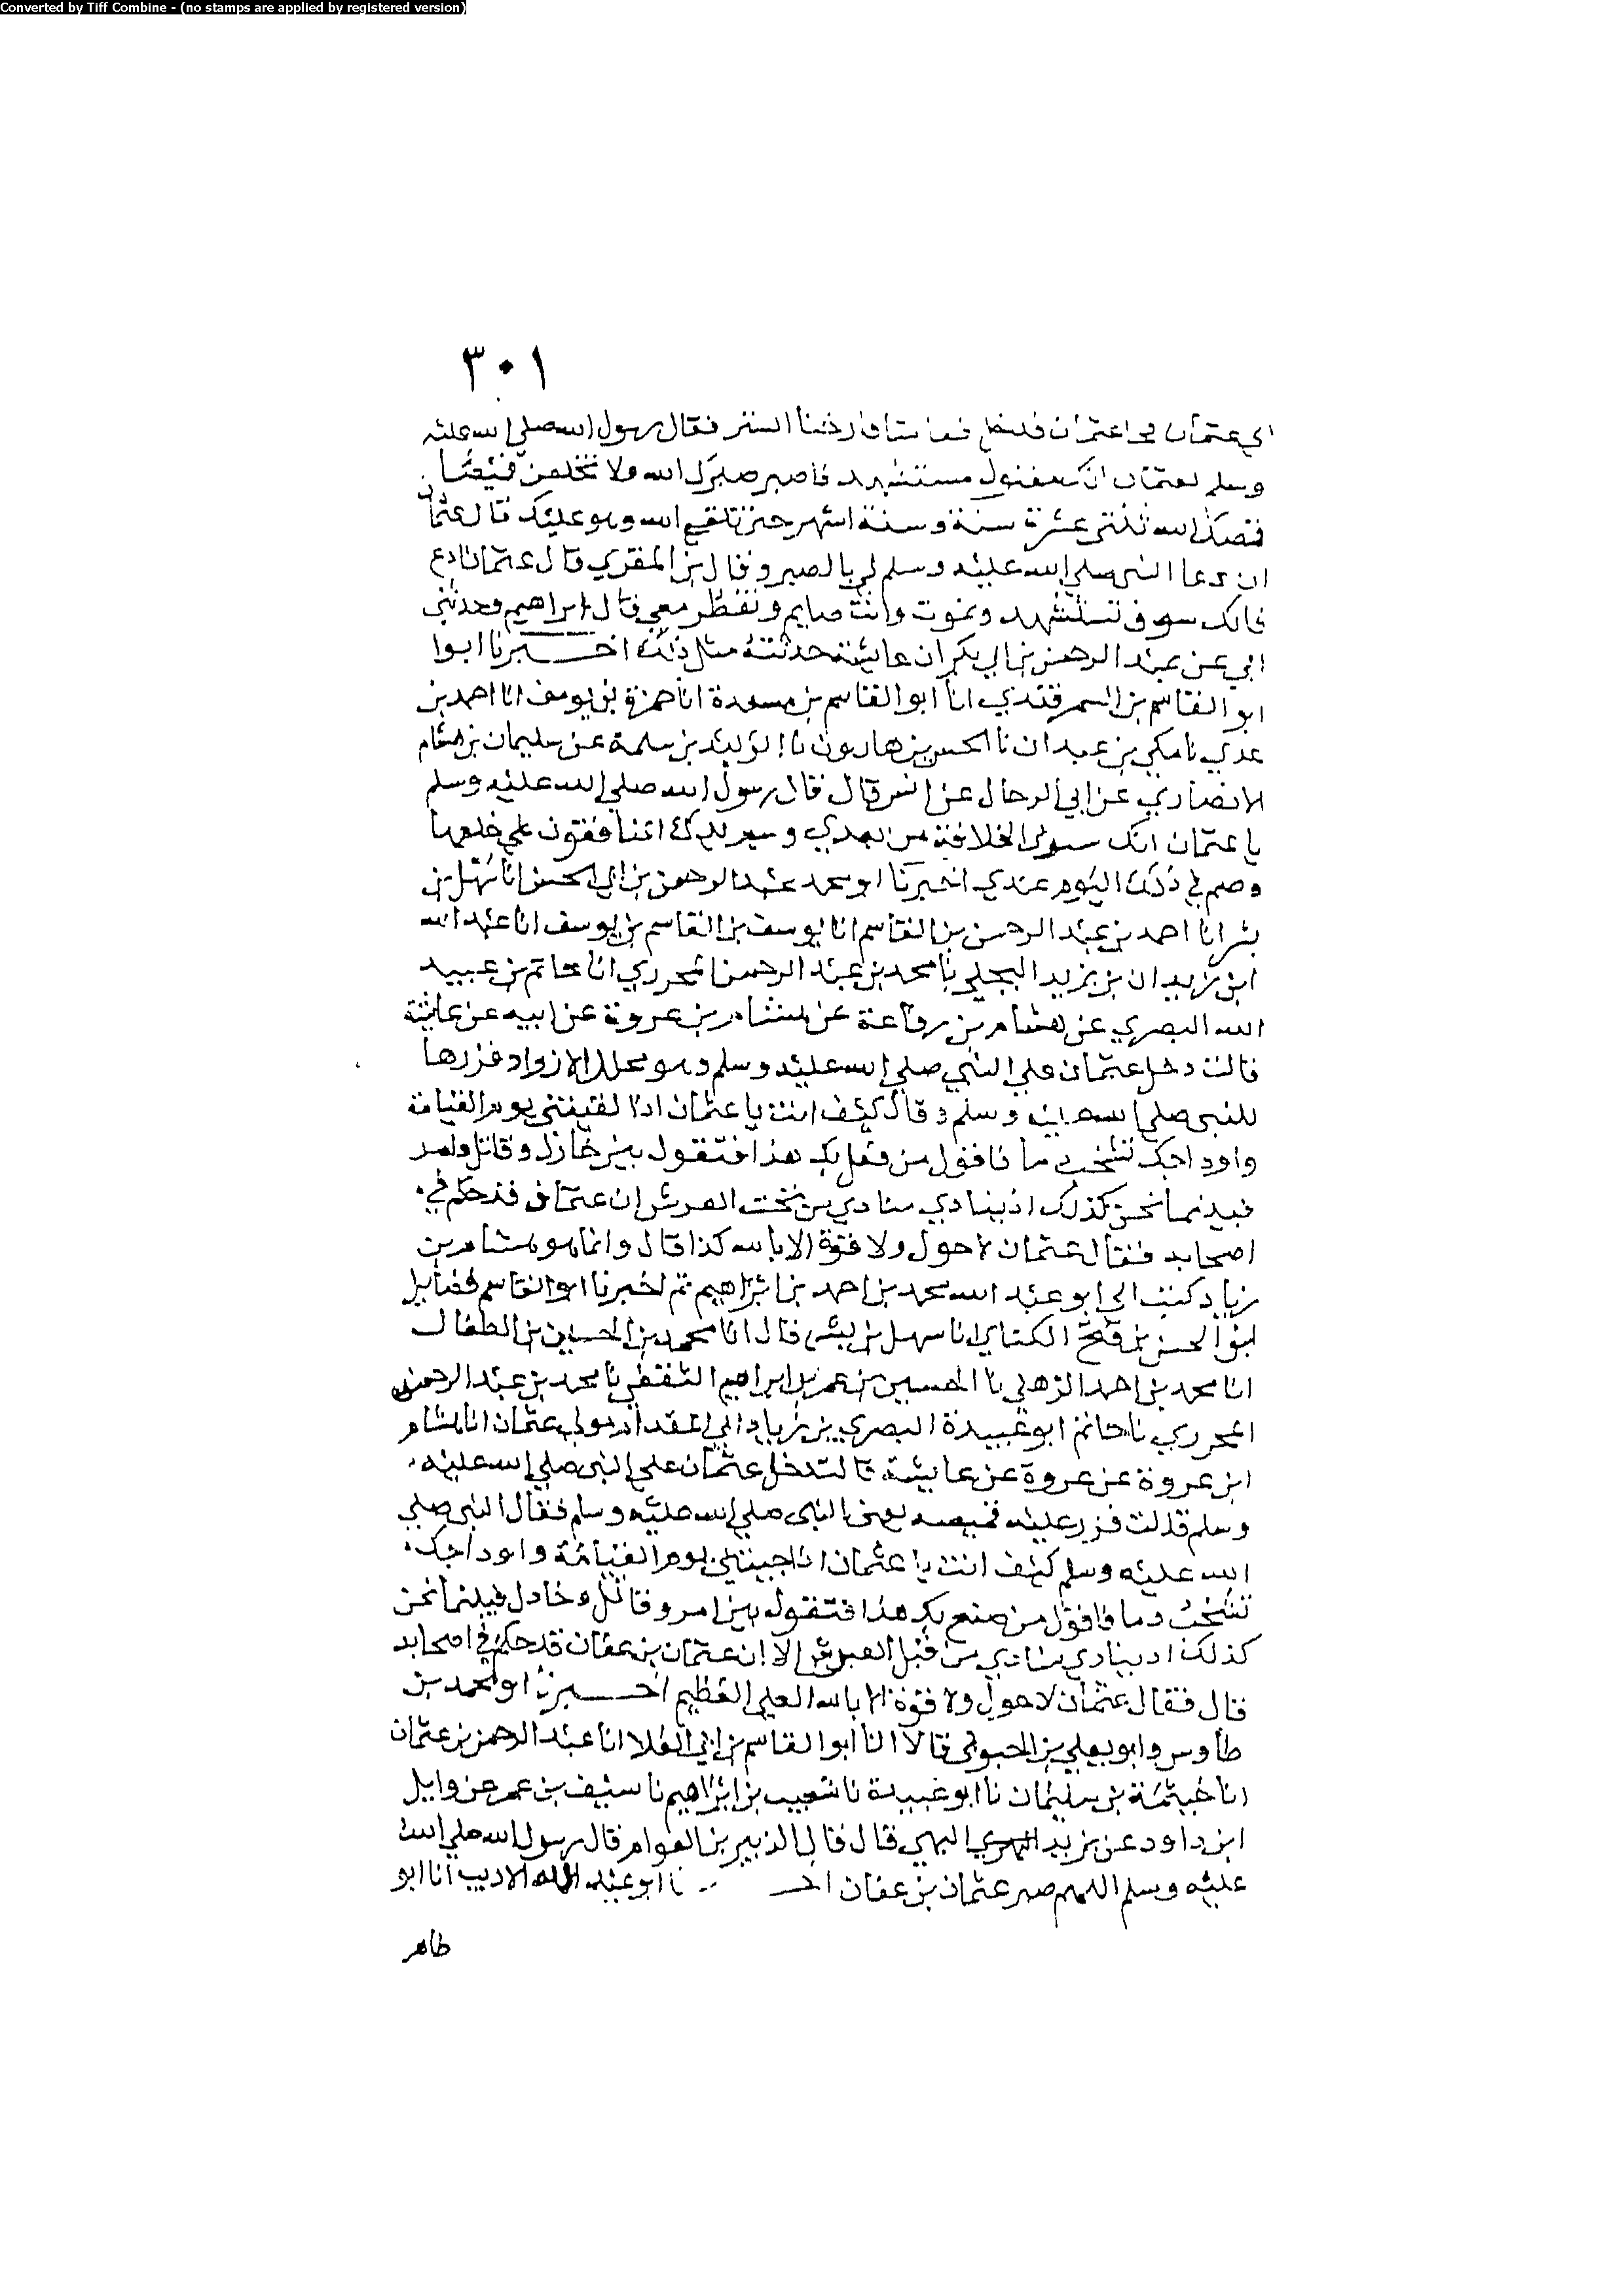 Converted by Tiff Combine - (no stamps are applied by registered version)
٣٠١
الى عثمان فجا عثمان فدخل فارخينا الستر فقال رسول الله صلى الله عليه
وسلم لعثمان انك مقتول مستشهد فاصبر صبرك الله ولا تخلعن قميصا
قمصك الله ثنتي عشرة سنة وستة اشهر حتى تلقى الله وهو عليك قال عثمان
ان دعا النبي صلى الله عليه وسلم لي بالصبر وقال بن المقري قال عثمان ادع
فانك سوف تستشهد وتموت وانت صايم وتفطر معي قال ابراهيم وحدثني
ابي عن عبد الرحمن بن ابي بكر ان عايشة حدثته مثل ذلك اخبرنا ابوا
ابو القاسم بن السمرقندي انا ابو القاسم بن مسعدة انا حمزة بن يوسف انا احمد بن
عدي نا مكي بن عبدان نا الحسن بن هارون نا الوليد بن سلمة عن سليمان بن هشام
الانصاري عن ابي الرحال عن انس قال قال رسول الله صلى الله عليه وسلم
يا عثمان انك ستولى الخلافة من بعدي وسيريدك المنافقون على خلعها
وصم في ذلك اليوم عندي اخبرنا ابو محمد عبد الرحمن بن ابي الحسن انا سهل بن
بشر انا احمد بن عبد الرحمن بن القاسم انا يوسف بن القاسم بن يوسف انا عبد الله
ابن زيدان بن يزيد البجلي نا محمد بن عبد الرحمن المحرري انا حاتم بن عبيد
الله البصري عن هشام بن رفاعة عن هشام بن عروة عن ابيه عن عايشة
قالت دخل عثمان على النبي صلى الله عليه وسلم وهو محلل الازرار فزرها
للنبي صلى الله عليه وسلم وقال كيف انت يا عثمان اذا لقيتني يوم القيامة
واوداجك تشخب دما فاقول من فعل بك هذا فتقول بين خاذل وقاتل وامر
فبينما نحن كذلك اذ ينادي منادي من تحت العرش ان عثمان قد حكم في
اصحابه فقال عثمان لا حول ولا قوة الا بالله كذا قال وانما هو هشام بن
زياد كتب الي ابو عبد الله محمد بن احمد بن ابراهيم ثم اخبرنا ابو القاسم فضايل
ابنوا الحسن بن فتح الكتاني انا سهل بن بشر قال انا محمد بن الحسين بن الطفال
انا محمد بن احمد الذهلي نا الحسين بن عمر بن ابراهيم الثقفي نا محمد بن عبد الرحمن
المحرري نا حاتم ابو عبيدة البصري بن زياد ابي المقدام مولى عثمان انا هشام
ابن عروة عن عروة عن عايشة قالت دخل عثمان على النبي صلى الله عليه
وسلم قالت فزر عليه قميصه يعني النبي صلى الله عليه وسلم فقال النبي صلى
الله عليه وسلم كيف انت يا عثمان اذا جيتني يوم القيامة واوداجك
تشخب دما فاقول من صنع بك هذا فتقول بين امر وقاتل وخاذل فبينما نحن
كذلك اذ ينادي منادي من قبل العرش الا ان عثمان بن عفان قد حكم في اصحابه
قال فقال عثمان لا حول ولا قوة الا بالله العلي العظيم اخبرنا ابو محمد بن
طاوس وابو يعلى بن الحبوبي قالا انا ابو القاسم بن ابي العلا انا عبد الرحمن بن عثمان
انا خيثمة بن سليمان نا ابو عبيدة نا شعيب بن ابراهيم نا سيف بن عمر عن وايل
ابن داود عن يزيد البهي قال قال الزبير بن العوام قال رسول الله صلى الله
عليه وسلم اللهم صبر عثمان بن عفان اخبرنا ابو عبد الله الاديب انا ابو
طاهر